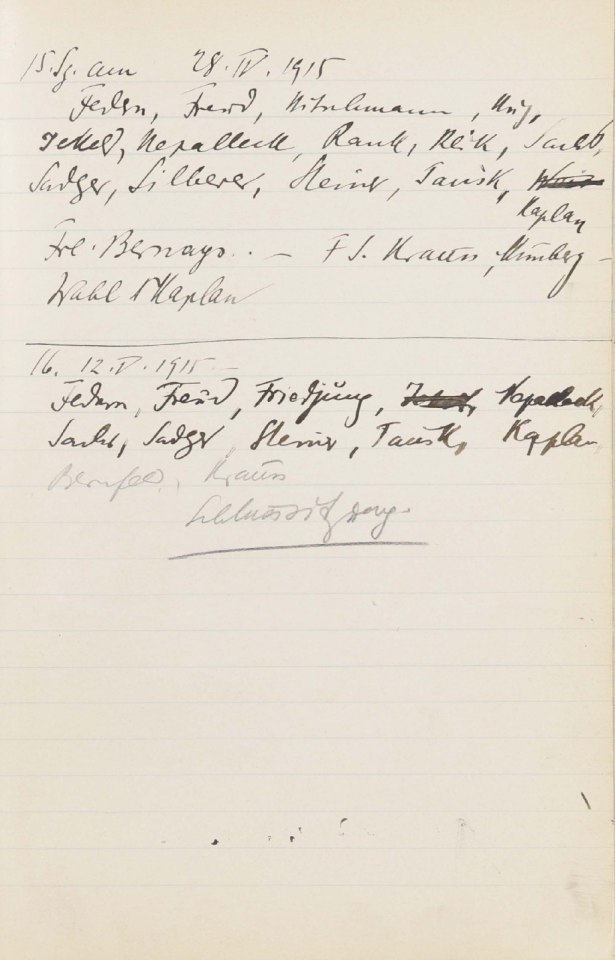 15. Sg. am 28. IV. 1915
Federn, Freud, Hitschmann, Hug,
Jekels, Nepalleck, Rank, Reik, Sachs,
Sadger, Silberer, Steiner, Tausk,
Kaplan
Frl. Bernays. – F S. Krauss, Nunberg –
Wahl Kaplan
16. 12. V. 1915 –
Federn, Freud, Friedjung, Jekels, Nepalleck,
Sachs, Sadger, Steiner, Tausk, Kaplan
Bernfeld, Krauss
Schlusssitzung.